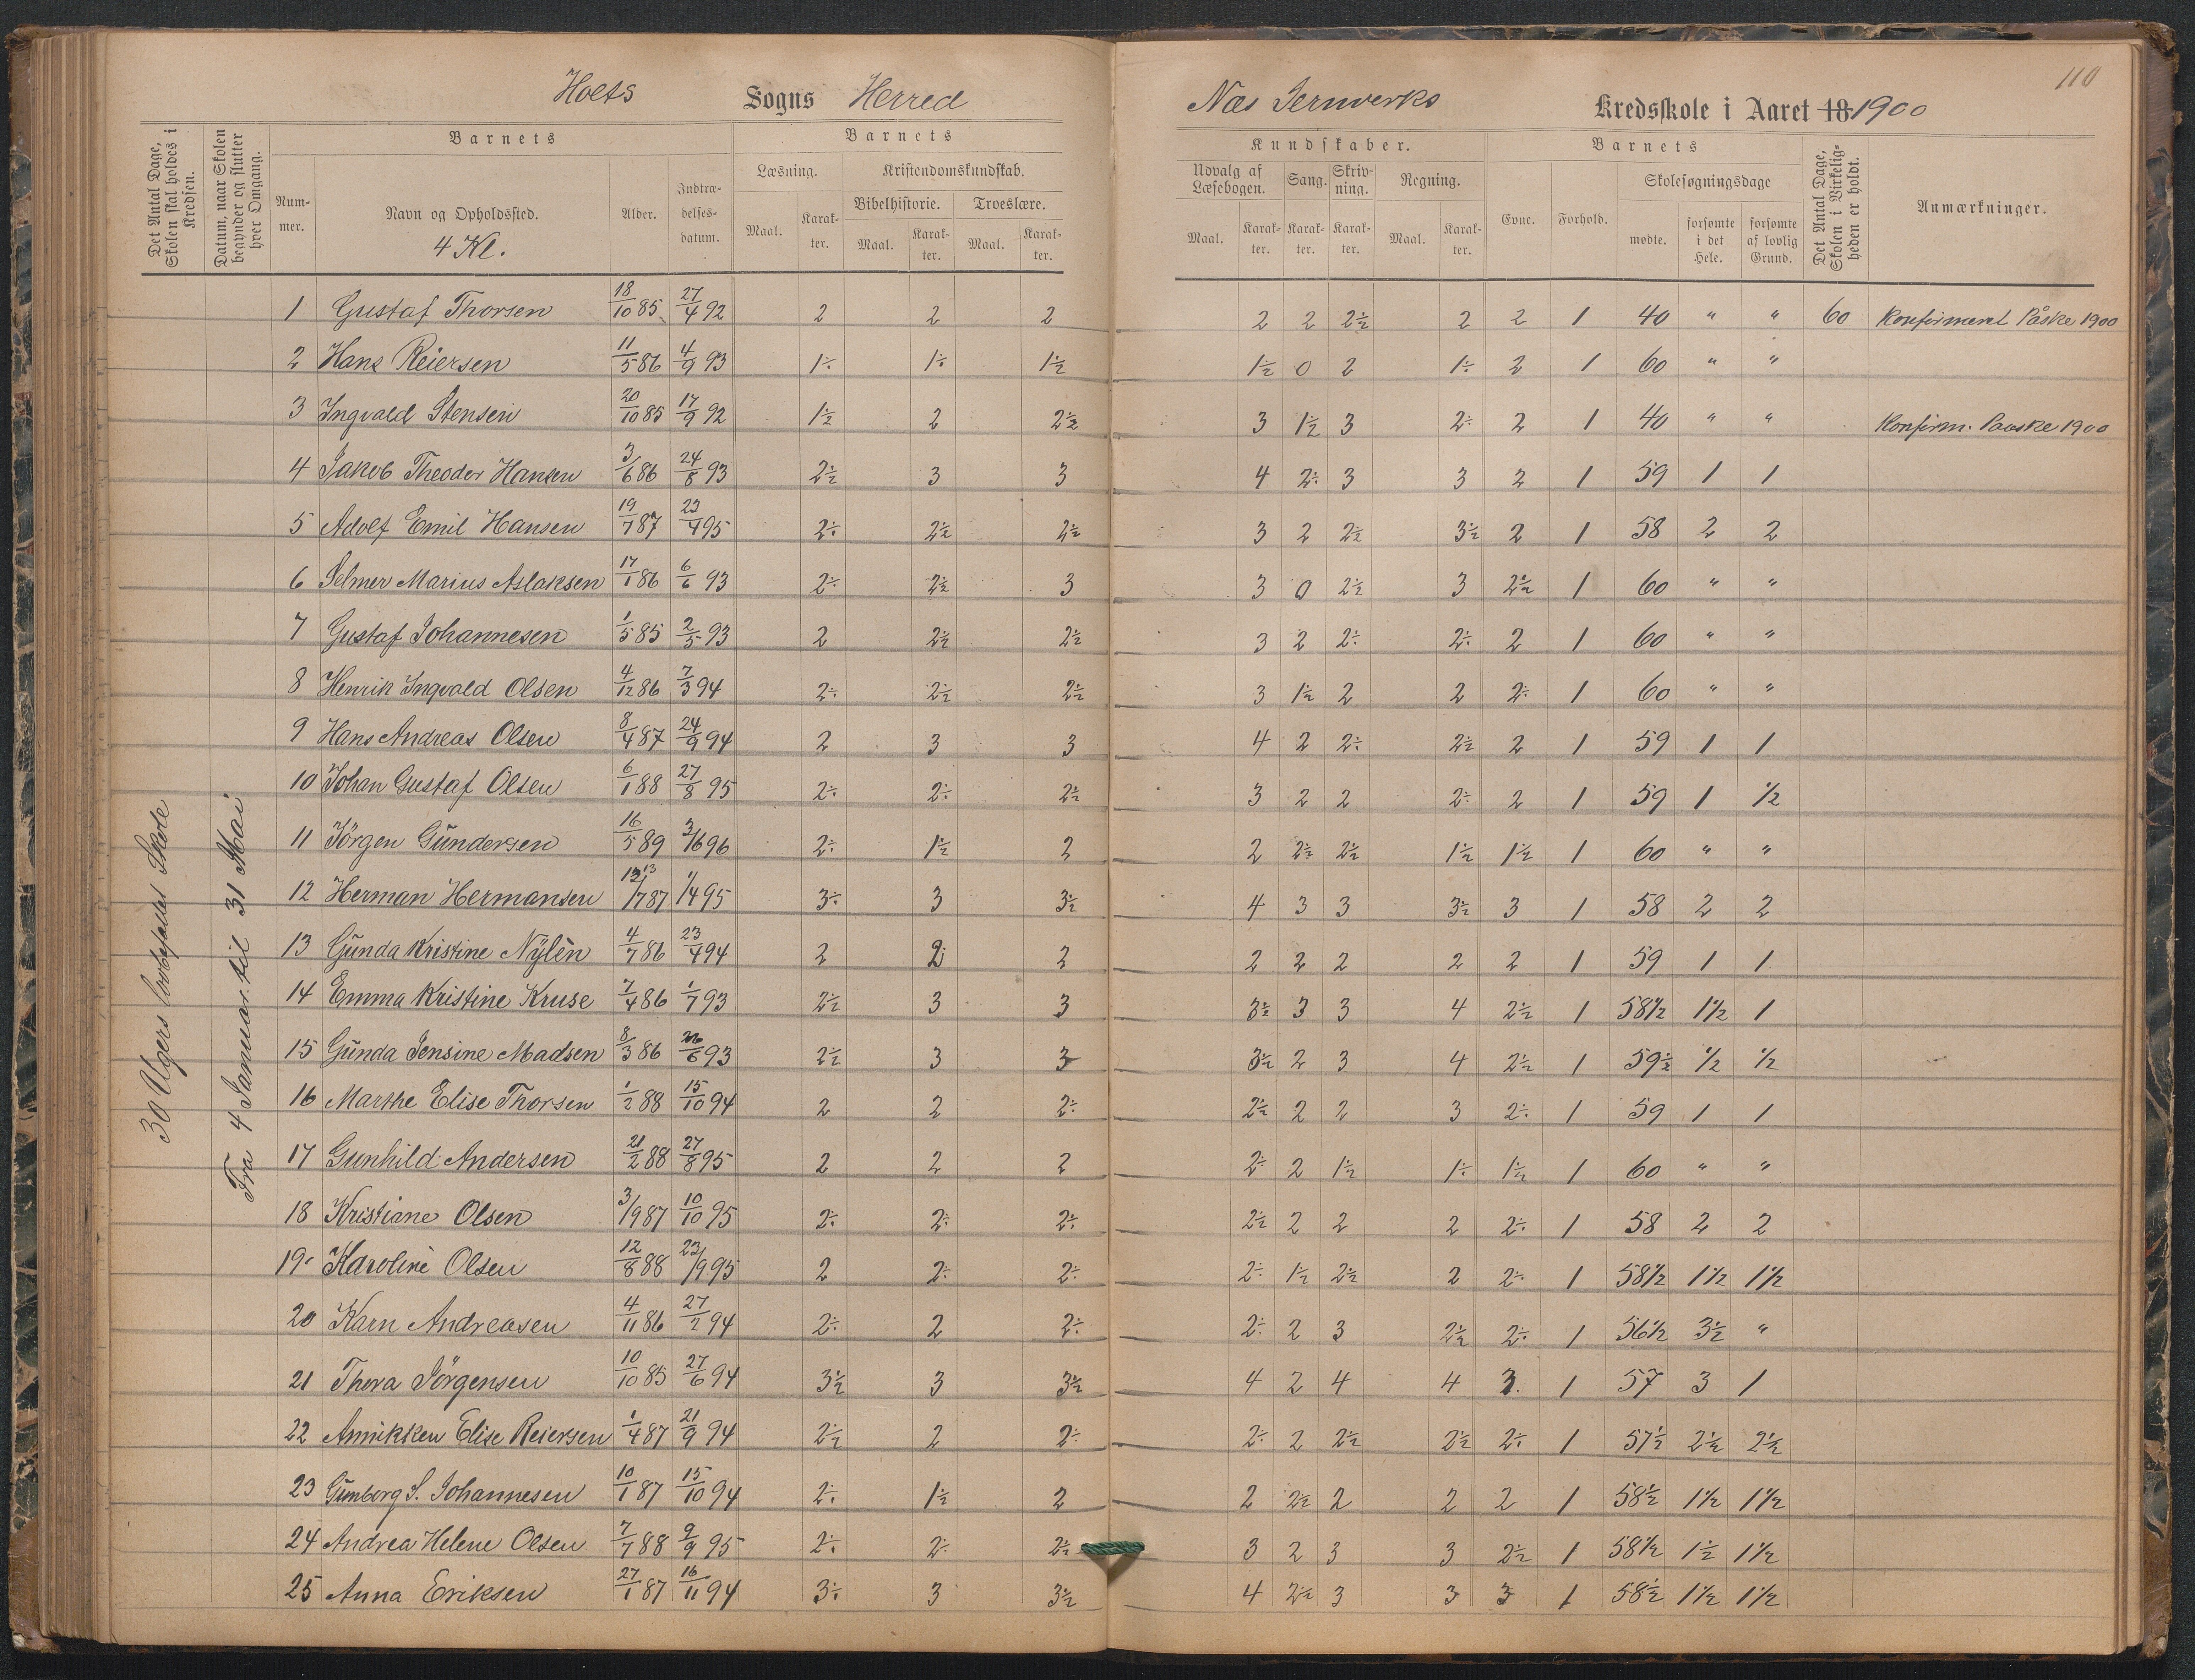 110
Hoets Sogns Herred
Næs Jernverks Kredsskole i Aaret 18 1900
Det Antal Dage, Skolen skal holdes i Kredsen.
Datum, naar Skolen begynder og slutter hver Omgang.
Barnets
Nummer.
Navn og Opholdssted.
4 Kl.
Alder.
Indtrædelses-datum.
Barnets
Læsning.
Maal.
Karakter.
Kristendomskundskab.
Bibelhistorie.
Maal.
Karakter.
Troeslære.
Maal.
Karakter.
Kundskaber.
Udvalg af Læsebogen.
Maal.
Karakter.
Sang.
Karakter.
Skrivning.
Karakter.
Regning.
Maal.
Karakter.
Barnets
Evne.
Forhold.
Skolesøgningsdage
mødte.
forsømte i det Hele.
forsømte af lovlig Grund.
Det Antal Dage, Skolen i Virkeligheden er holdt.
Anmærkninger.
30 Ugers lovbefalet Skole
Fra 4 Januar til 31 Mai
1 Gustaf Thorsen 18/10 85 27/4 92 2 2 2 2 2 2½ 2 2 1 40 " " 60 Konfirmeret Påske 1900
2 Hans Reiersen 11/5 86 4/9 93 1÷ 1÷ 1½ 1½ 0 2 1÷ 2 1 60 " "
3 Ingvald Stensen 20/10 85 17/9 92 1½ 2 2½ 3 1½ 3 2÷ 2 1 40 " " Konfirm. Paaske 1900
4 Jakob Theodor Hansen 3/6 86 24/8 93 2½ 3 3 4 2÷ 3 3 2 1 59 1 1
5 Adolf Emil Hansen 19/7 87 23/4 95 2÷ 2½ 2½ 3 2 2½ 3½ 2 1 58 2 2
6 Selmer Marius Aslaksen 17/1 86 6/6 93 2÷ 2½ 3 3 0 2½ 3 2½ 1 60 " "
7 Gustaf Johannesen 1/5 85 2/5 93 2 2½ 2½ 3 2 2÷ 2÷ 2 1 60 " "
8 Henrik Ingvald Olsen 4/12 86 7/3 94 2÷ 2½ 2½ 3 1½ 2 2 2÷ 1 60 " "
9 Hans Andreas Olsen 8/4 87 24/9 94 2 3 3 4 2 2÷ 2½ 2 1 59 1 1
10 Johan Gustaf Olsen 6/1 88 27/8 95 2÷ 2÷ 2½ 3 2 2 2÷ 2 1 59 1 ½
11 Jörgen Gundersen 16/5 89 3/1 96 2÷ 1½ 2 2 2½ 2½ 1½ 1½ 1 60 " "
12 Herman Hermansen 13/7 87 1/4 95 3÷ 3 3½ 4 3 3 3½ 3 1 58 2 2
13 Gunda Kristine Nylèn 4/7 86 23/4 94 2 2 2 2 2 2 2 2 1 59 1 1
14 Emma Kristine Kruse 7/4 86 1/7 93 2½ 3 3 3½ 3 3 4 2½ 1 58½ 1½ 1
15 Gunda Jensine Madsen 8/3 86 26/6 93 2½ 3 3 3½ 2 3 4 2½ 1 59½ ½ ½
16 Marthe Elise Thorsen 1/2 88 15/10 94 2 2 2÷ 2½ 2 2 3 2÷ 1 59 1 1
17 Gunhild Andersen 21/2 88 27/8 95 2 2 2 2÷ 2 1½ 1÷ 1½ 1 60 " "
18 Kristiane Olsen 3/9 87 10/10 95 2÷ 2÷ 2÷ 2½ 2 2 2 2÷ 1 58 2 2
19 Karoline Olsen 12/8 88 23/9 95 2 2÷ 2÷ 2÷ 1½ 2½ 2 2÷ 1 58½ 1½ 1½
20 Karn Andreasen 4/11 86 27/2 94 2÷ 2 2÷ 2÷ 2 3 2½ 2÷ 1 56½ 3½ "
21 Thora Jörgensen 10/10 85 27/6 94 3½ 3 3½ 4 2 4 4 3 1 57 3 1
22 Annikken Elise Reiersen 1/4 87 21/9 94 2½ 2 2÷ 2÷ 2 2½ 2½ 2÷ 1 57½ 2½ 2½
23 Gunborg S. Johannesen 10/1 87 15/10 94 2÷ 1½ 2 2 2½ 2 2 2 1 58½ 1½ 1½
24 Andrea Helene Olsen 7/7 88 9/9 95 2÷ 2÷ 2½ 3 2 3 3 2½ 1 58½ 1½ 1½
25 Anna Eriksen 27/1 87 16/11 94 3÷ 3 3½ 4 2½ 3 3 3 1 58½ 1½ 1½